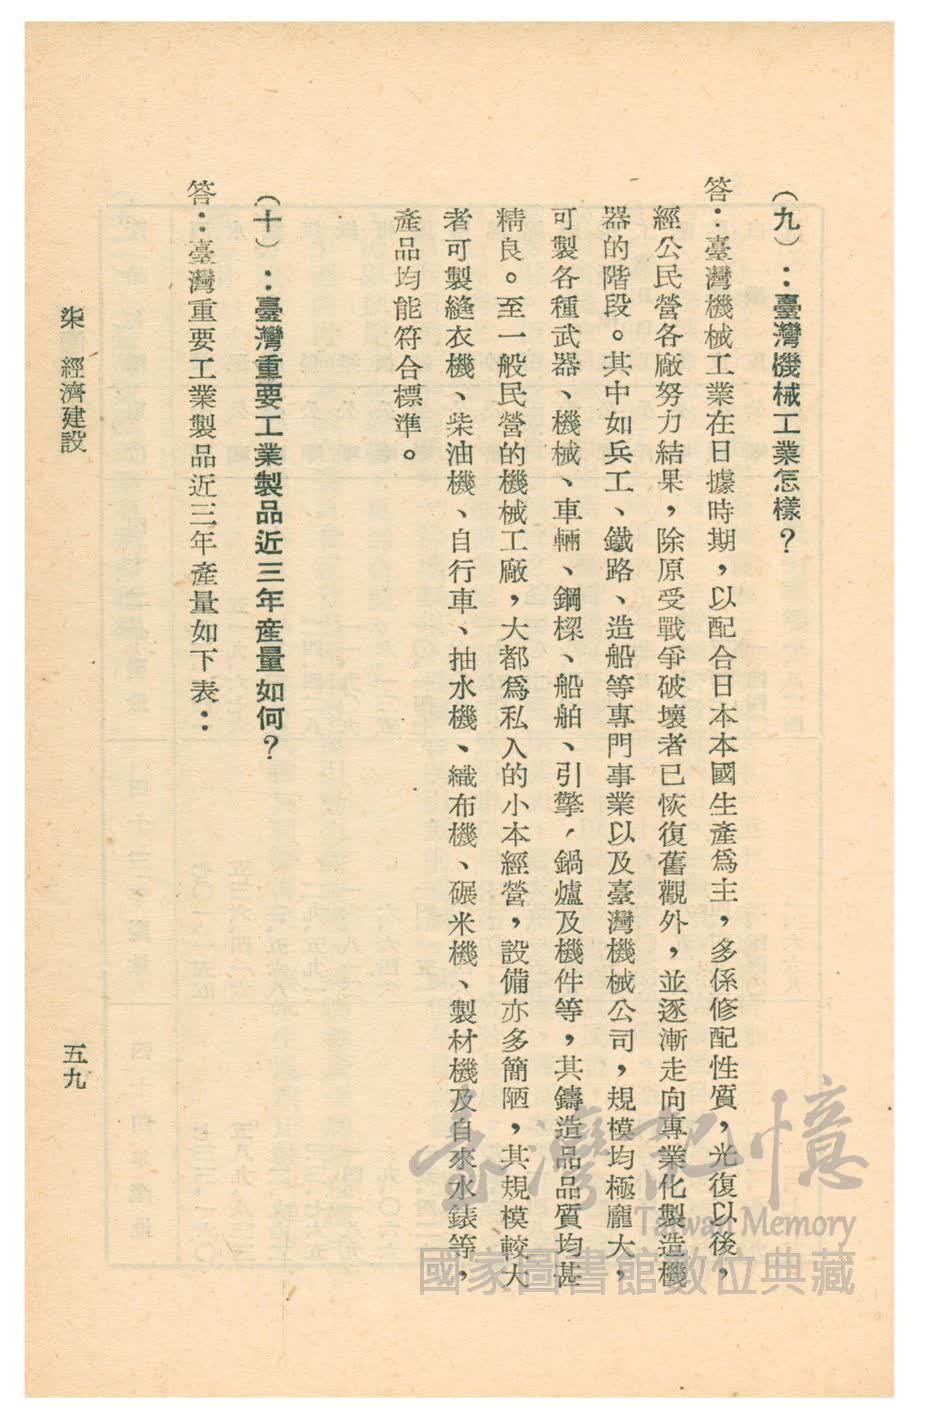 （九）：臺灣機械工業怎樣？
答：臺灣機械工業在日據時期，以配合日本本國生產爲主，多係修配性質，光復以後，
經公民營各廠努力結果，除原受戰爭破壞者已恢復舊觀外，並逐漸走向專業化製造機
器的階段。其中如兵工、鐵路、造船等專門事業以及臺灣機械公司，規模均極龐大，
可製各種武器、機械、車輛、鋼樑、船舶、引擎，鍋爐及機件等，其鑄造品品質均甚
精良。至一般民營的機械工廠，大都爲私入的小本經營，設備亦多簡陋，其規模較大
者可製縫衣機、柴油機、自行車、抽水機、織布機、碾米機、製材機及自來水錶等，
產品均能符合標準。
（十）：臺灣重要工業製品近三年產量如何？
答：臺灣重要工業製品近三年產量如下表：
柒 經濟建設
五九
臺灣記憶
Taiwan Memory
國家圖書館數位典藏